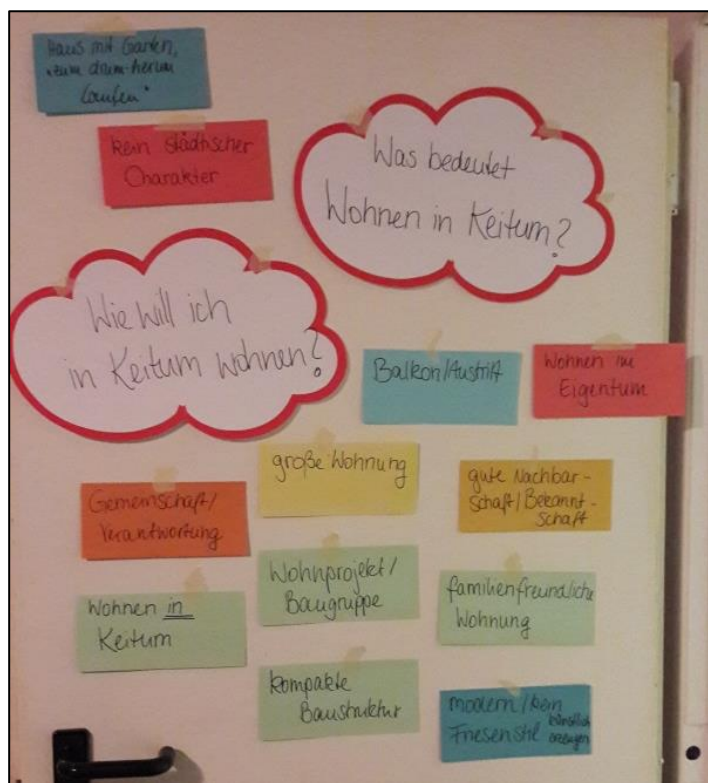 Haus mit Garten,
"zum drum-herum
laufen"
kein städtischer
Charakter
Was bedeutet
Wohnen in Keitum?
Wie will ich
in Keitum wohnen?
Balkon/Austritt
Wohnen im
Eigentum
große Wohnung
gute Nachbar-
schaft/Bekannt-
schaft
Gemeinschaft/
Verantwortung
Wohnprojekt/
Baugruppe
familienfreundliche
Wohnung
Wohnen in
Keitum
kompakte
Baustruktur
modern/kein
Friesenstil künstlich
erzeugen